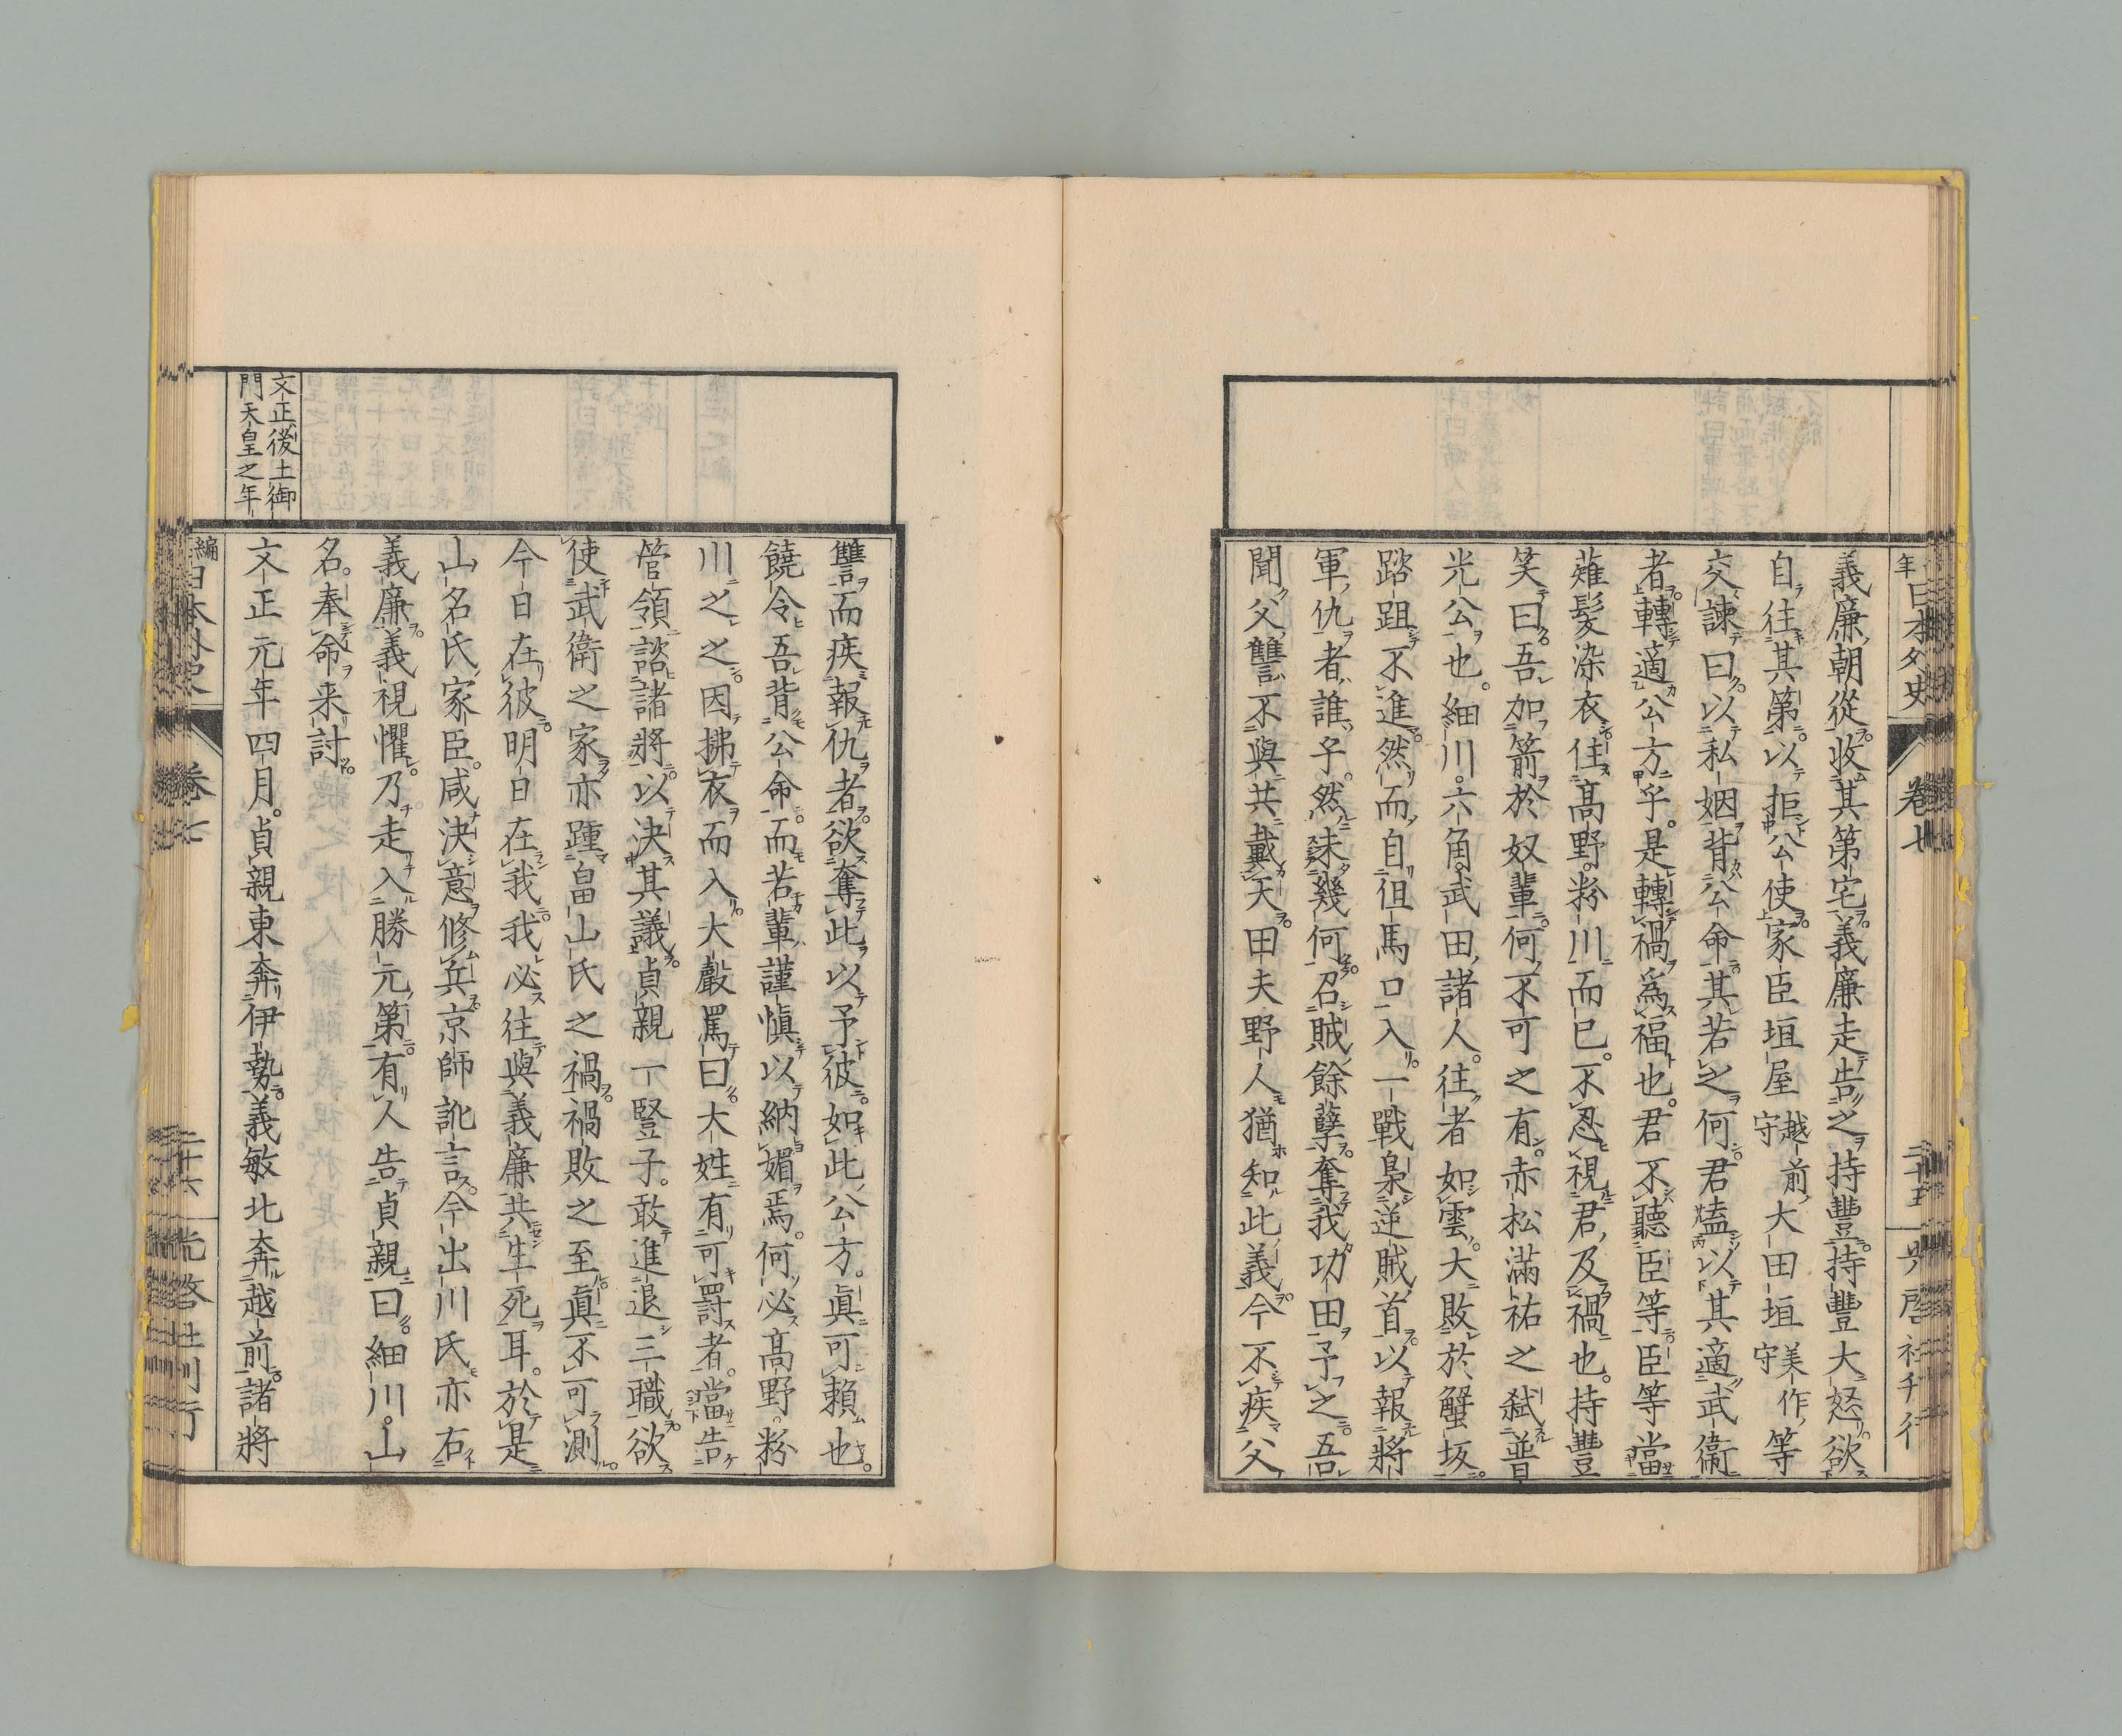 義廉朝從收其第宅義廉走告之持豐持豐大怒欲
自往其第以拒公使家臣垣屋越前守大田垣美作守等
交諫曰以私姻背公命其若之何君盍以其適武衞
者轉適公方乎是轉禍爲福也君不聽臣等臣等當
薙髮染衣住高野粉川而已不忍視君及禍也持豐
笑曰吾加箭於奴輩何不可之有赤松滿祐之弑普
光公也細川六角武田諸人往者如雲大敗於蟹坂
踏跙不進然而自但馬口入一戰梟逆賊首以報將
軍仇者誰乎然未幾何召賊餘孽奪我功田予之吾
聞父讐不與共戴天田夫野人猶知此義今不疾父
年日本外史 卷七 二十五 光啓社刊行
讐而疾報仇者欲奪此以予彼如此公方眞可賴也
饒令吾背公命而若輩謹愼以納媚焉何必高野粉
川之之因拂衣而入大嚴罵曰大姓有可罰者當告
管領諮諸將以決其議貞親一豎子敢進退三職欲
使武衛之家亦踵畠山氏之禍禍敗之至眞不可測
今日在彼明日在我我必往與義廉共生死耳於是
山名氏家臣咸決意修兵京師訛言今出川氏亦右
義廉義視懼乃走入勝元第有人告貞親曰細川山
名奉命来討
文正元年四月貞親東奔伊勢義敏北奔越前諸將
文正後土御
門天皇之年
編日本外史 卷七 二十六 光啓社刊行